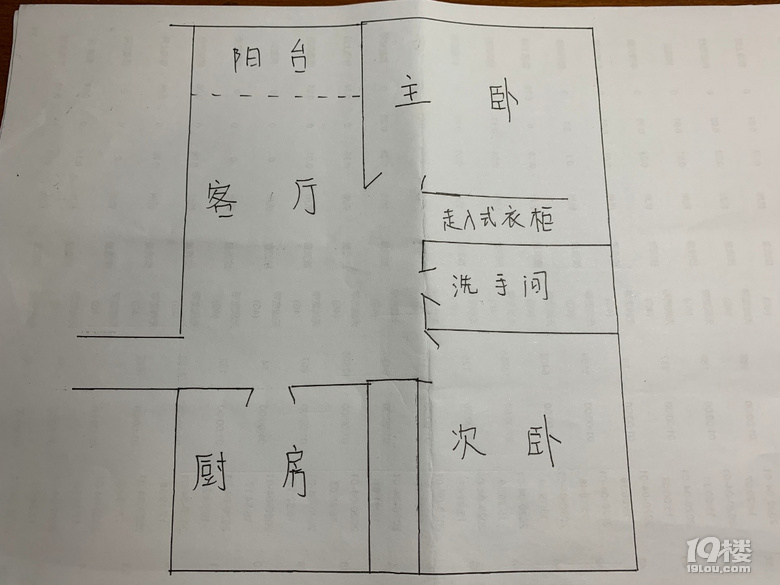 阳台
主卧
客厅
走入式衣柜
洗手间
次卧
厨房
19楼
19lou.com